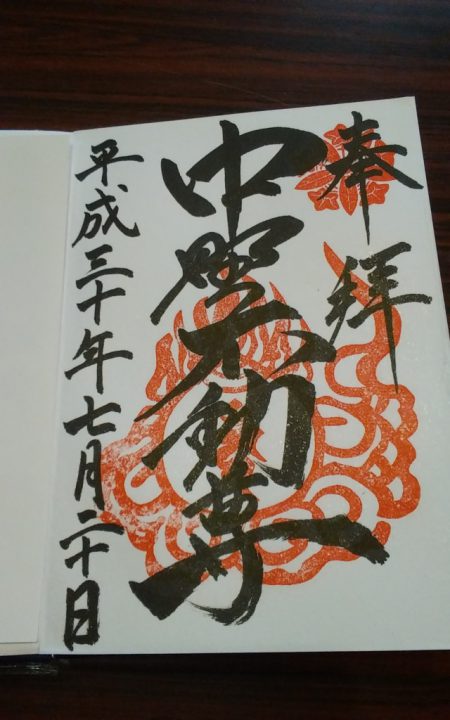 奉拝
中野不動尊
平成三十年七月二十日